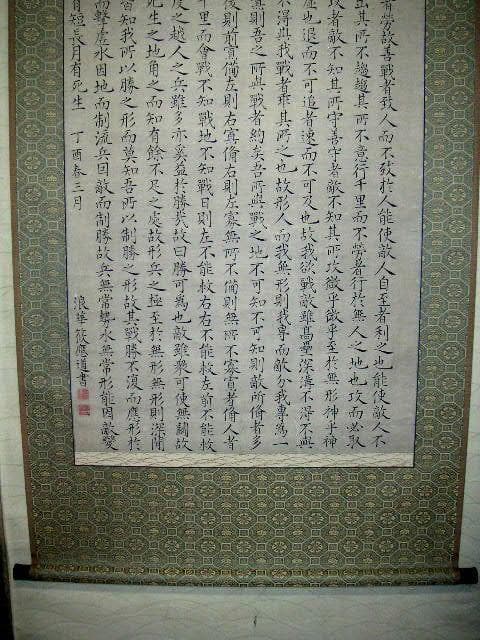 者勞故善戰者致人而不致於人能使敵人自至者利之也能使敵人不
出其所不趨趨其所不意行千里而不勞者行於無人之地也攻而必取
攻者敵不知其所守善守者敵不知其所攻微乎微乎至於無形神乎神
虛也退而不可追者速而不可及也故我欲戰敵雖高壘深溝不得不與
不得與我戰者乖其所之也故形人而我無形則我專而敵分我專為一
寡則吾之所與戰者約矣吾所與戰之地不可知不可知則敵所備者多
後則前寡備左則右寡備右則左寡無所不備則無所不寡寡者備人者
千里而會戰不知戰地不知戰日則左不能救右右不能救左前不能救
度之越人之兵雖多亦奚益於勝哉故曰勝可為也敵雖衆可使無鬪故
死生之地角之而知有餘不足之處故形兵之極至於無形無形則深間
皆知我所以勝之形而莫知吾所以制勝之形故其戰勝不復而應形於
而擊虛水因地而制流兵因敵而制勝故兵無常勢水無常形能因敵變
有短長月有死生 丁酉春三月
浪華筱應道書